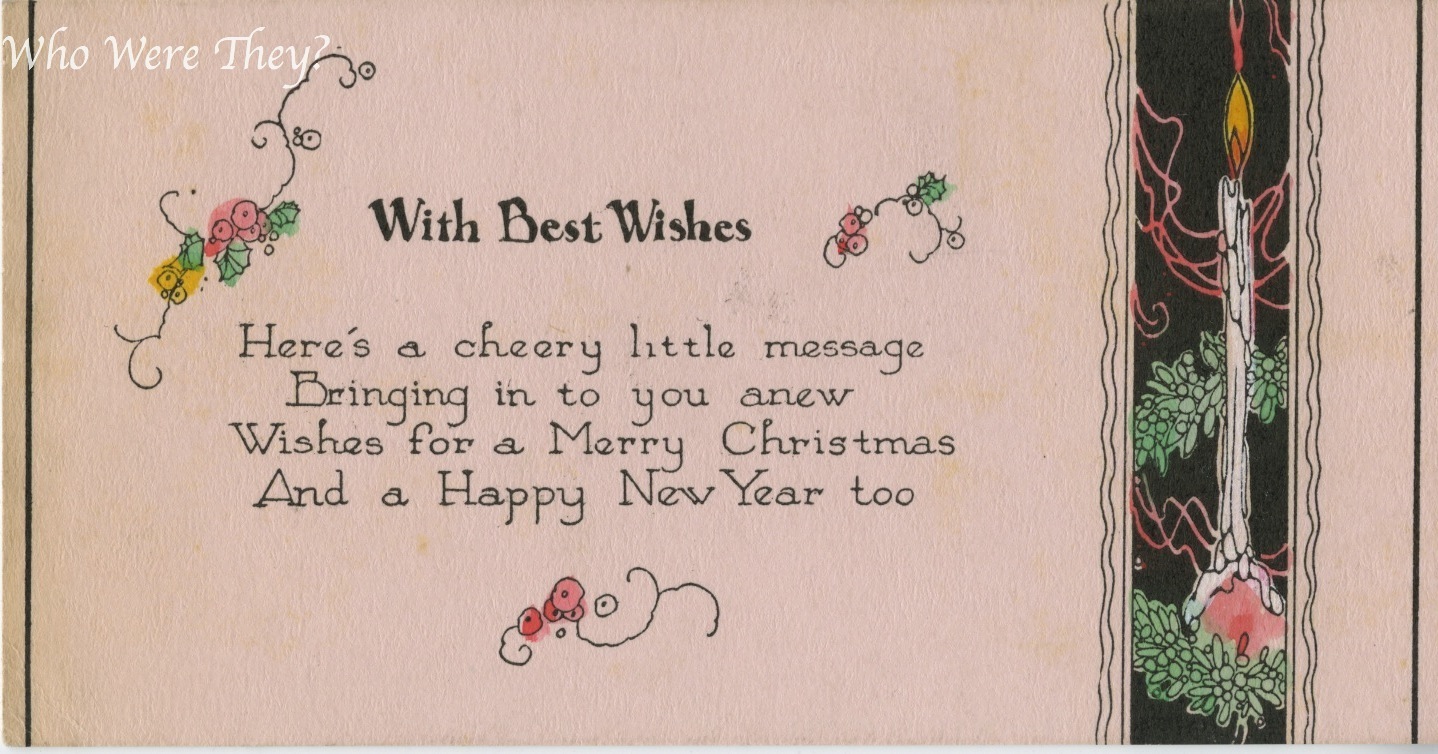 Who Were They?
With Best Wishes
Here's a cheery little message
Bringing in to you anew
Wishes for a Merry Christmas
And a Happy New Year too